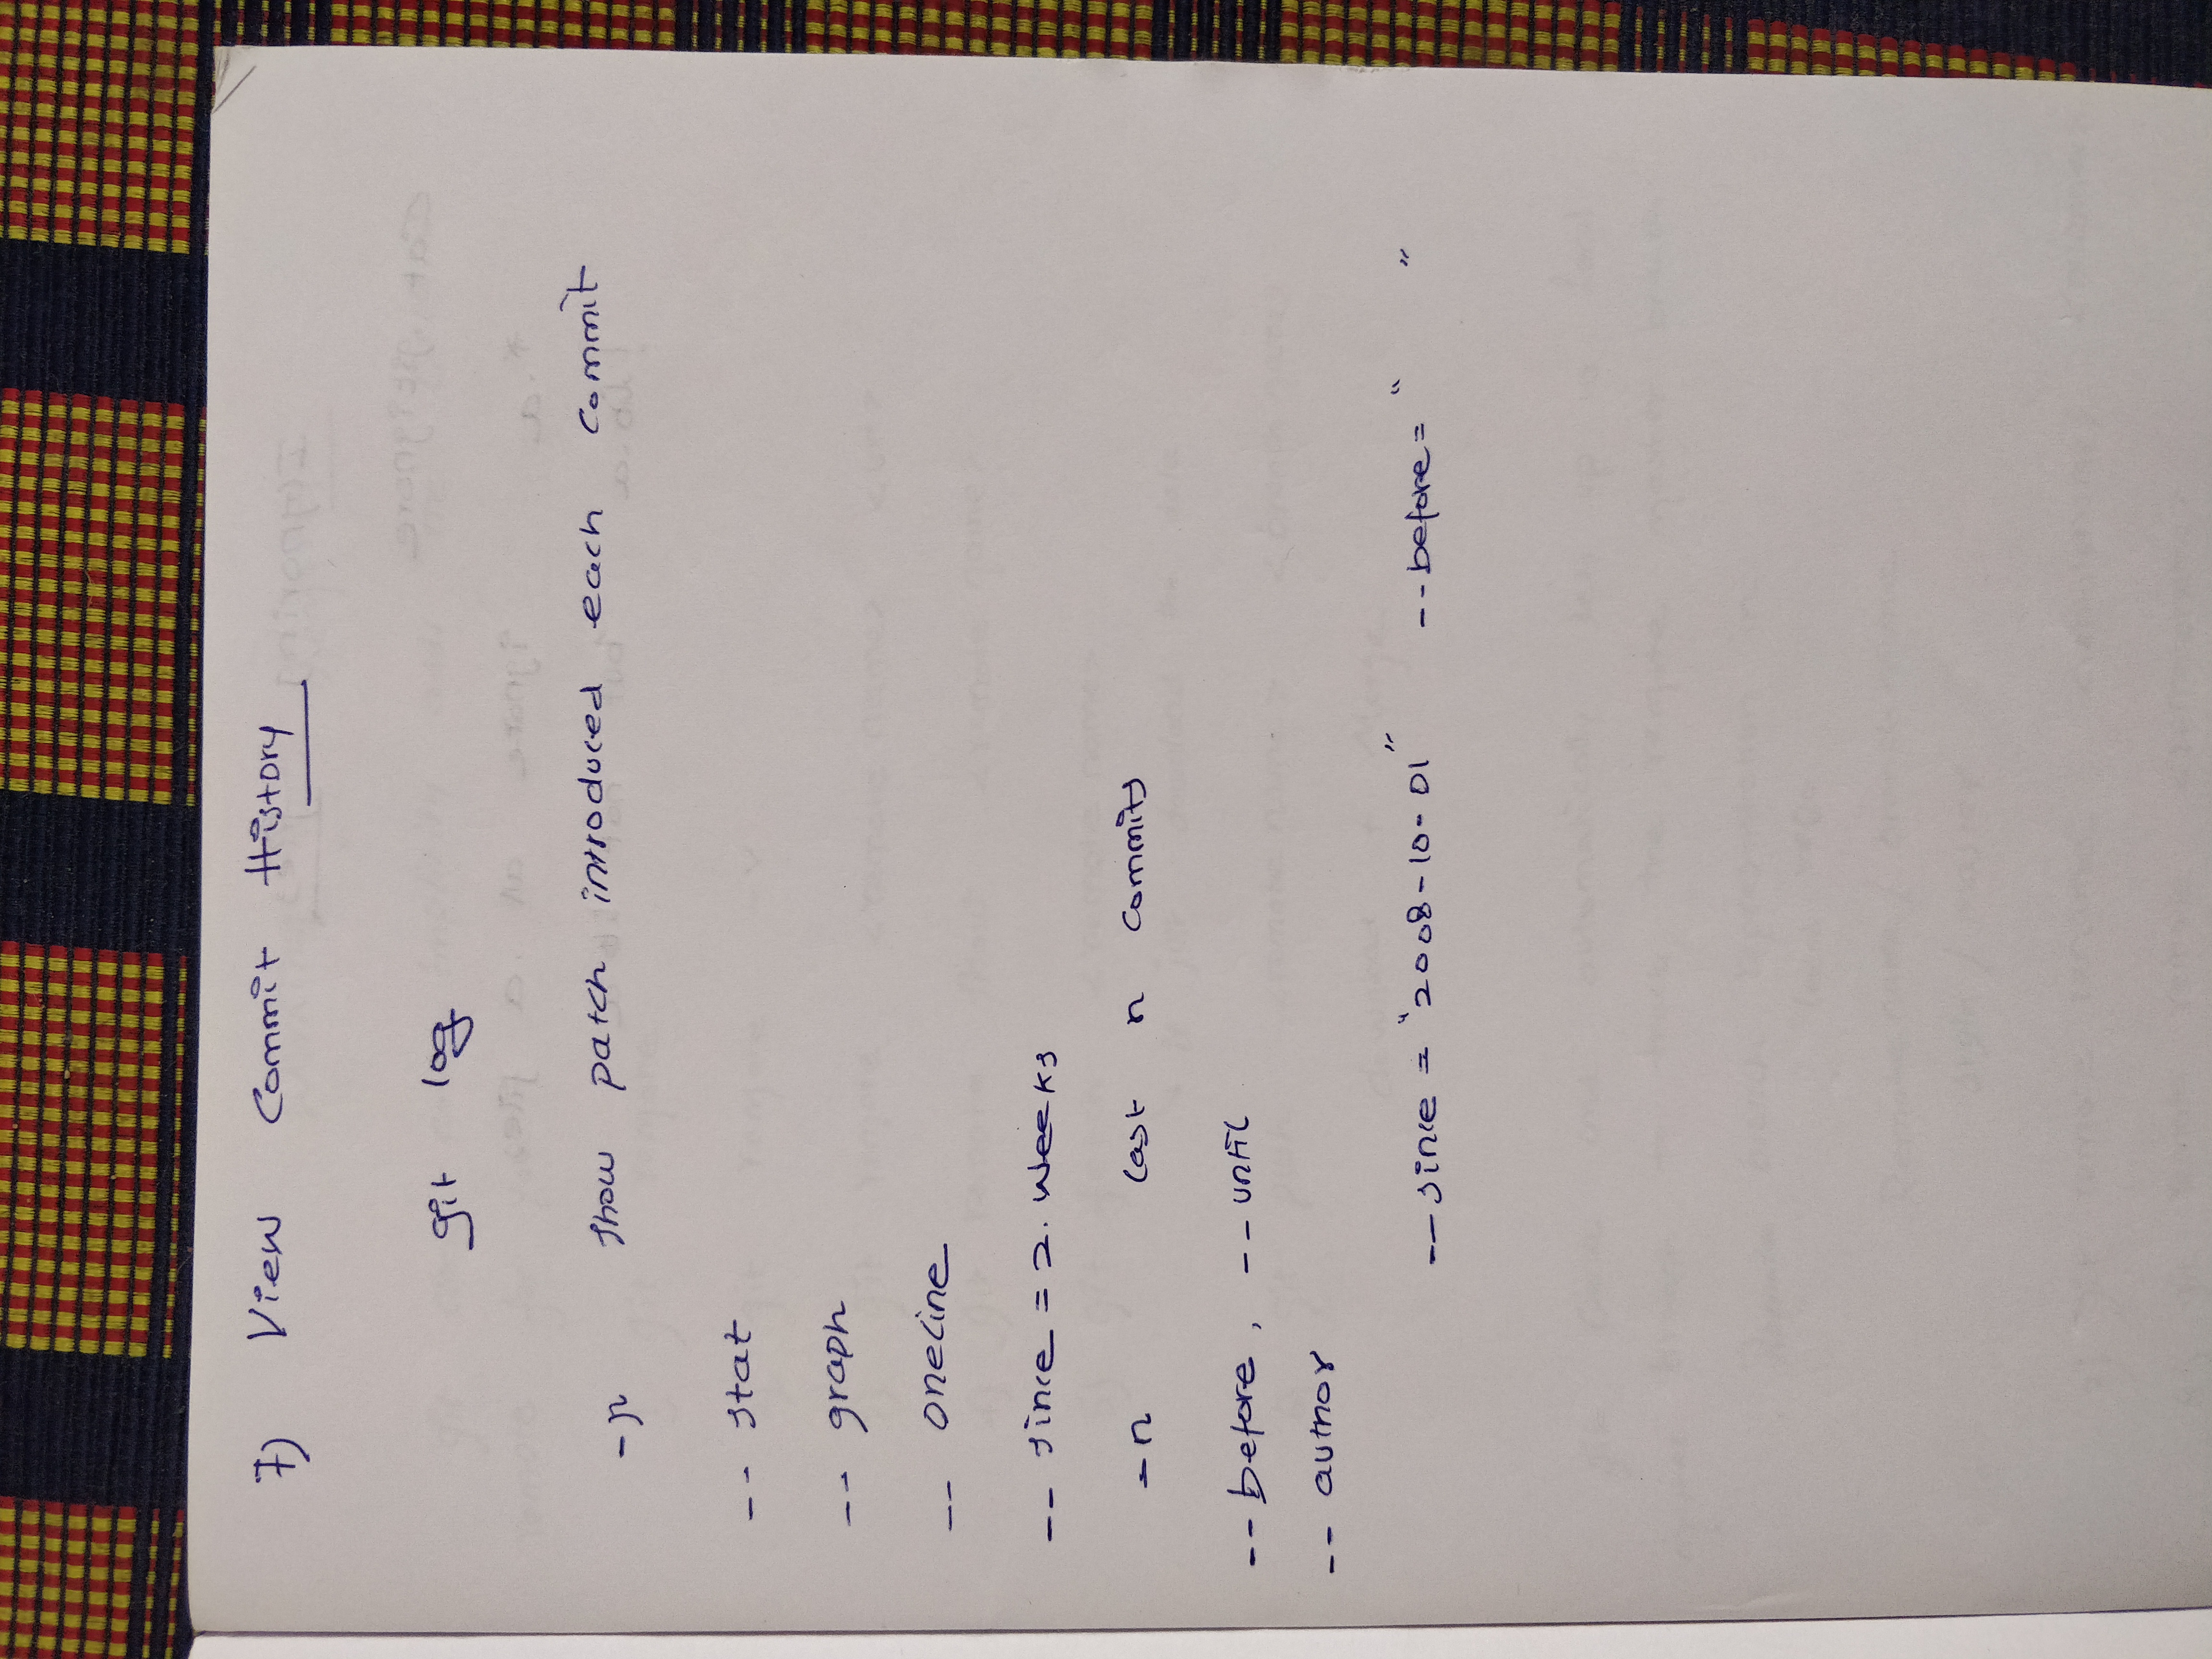 7) View Commit History
git log
-p show patch introduced each commit
-- stat
-- graph
-- oneline
-- since = 2. weeks
-n last n commits
-- before, -- until
-- author
-- since = "2008-10-01" -- before = " "